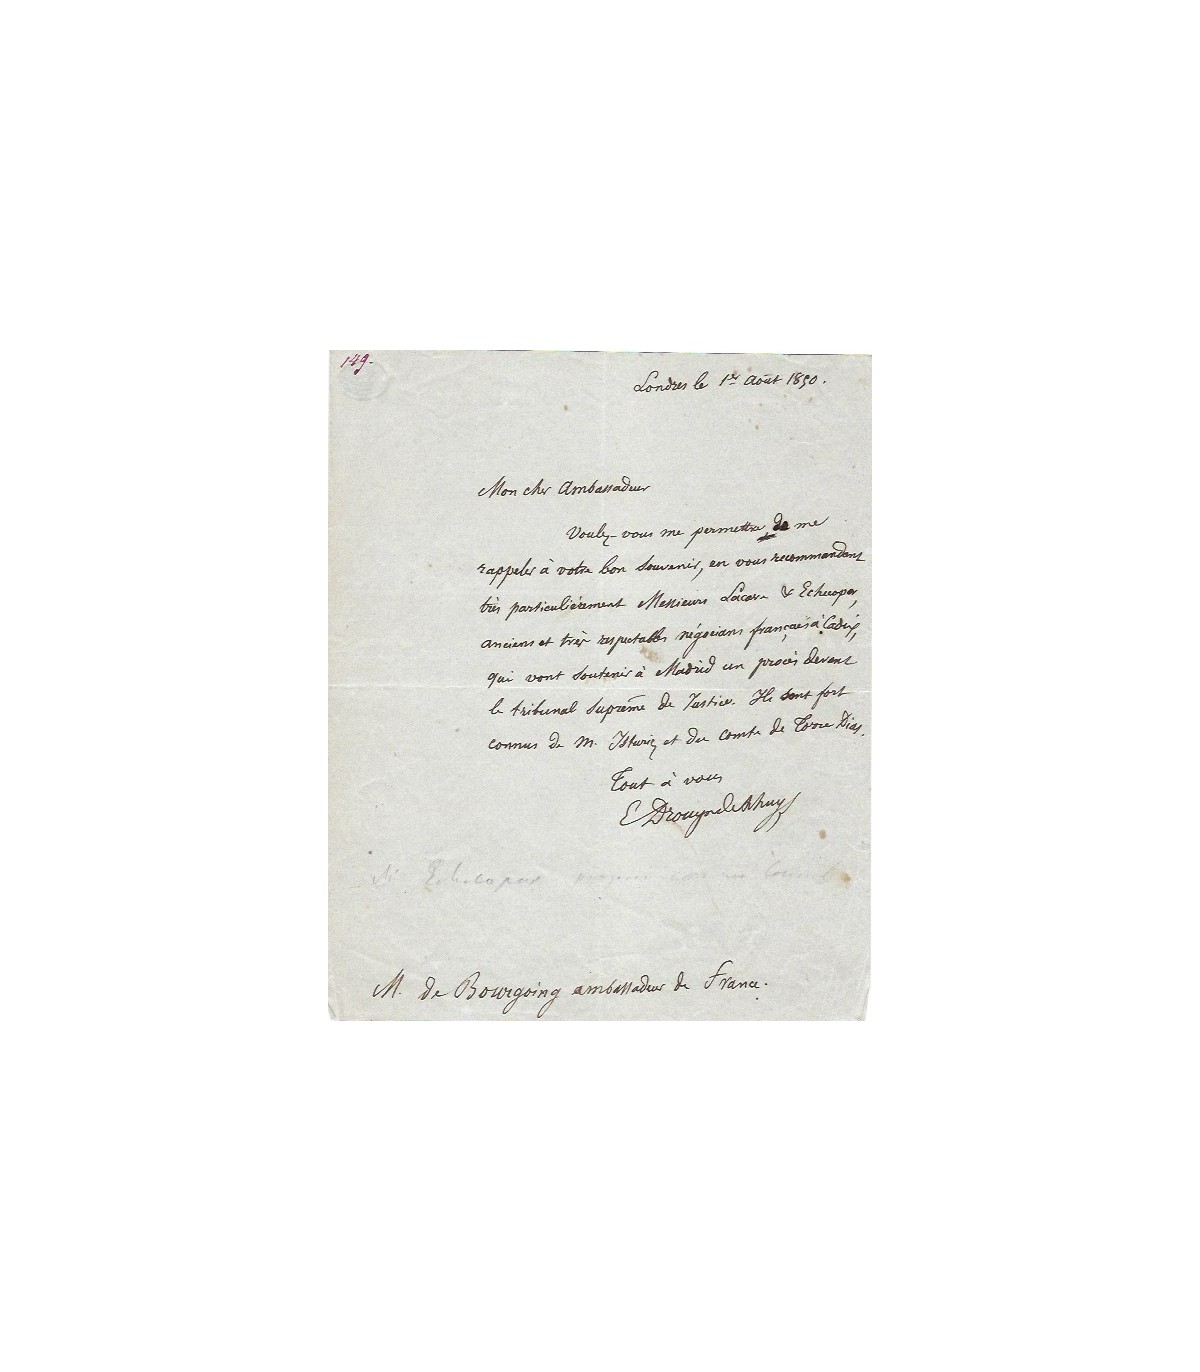 149.
Londres le 1er Août 1850.
Mon cher Ambassadeur
Voulez-vous me permettre de me
rappeler à votre bon souvenir, en vous recommandant
très particulièrement Messieurs Lacave & Echecopar,
anciens et très respectables négocians français à Cadix,
qui vont soutenir à Madrid un procès devant
le tribunal suprême de Justice. Ils sont fort
connus de M. Isturiz et du comte de Torre Dias.
Tout à vous
E Drouyn de Lhuys
Mr Echecopar
M. de Bourgoing ambassadeur de France.